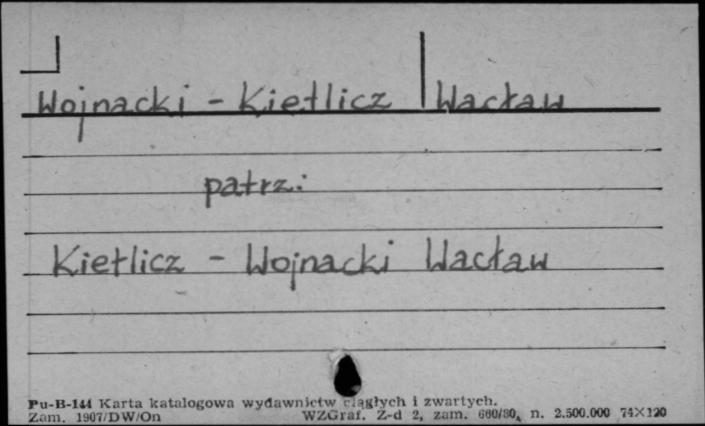 Wojnacki - Kietlicz Wacław
patrz:
Kietlicz - Wojnacki Wacław
Pu-B-144 Karta katalogowa wydawnictw ciągłych i zwartych.
Zam. 1907/DW/On WZGraf. Z-d 2, zam. 660/80, n. 2.500.000 74×120